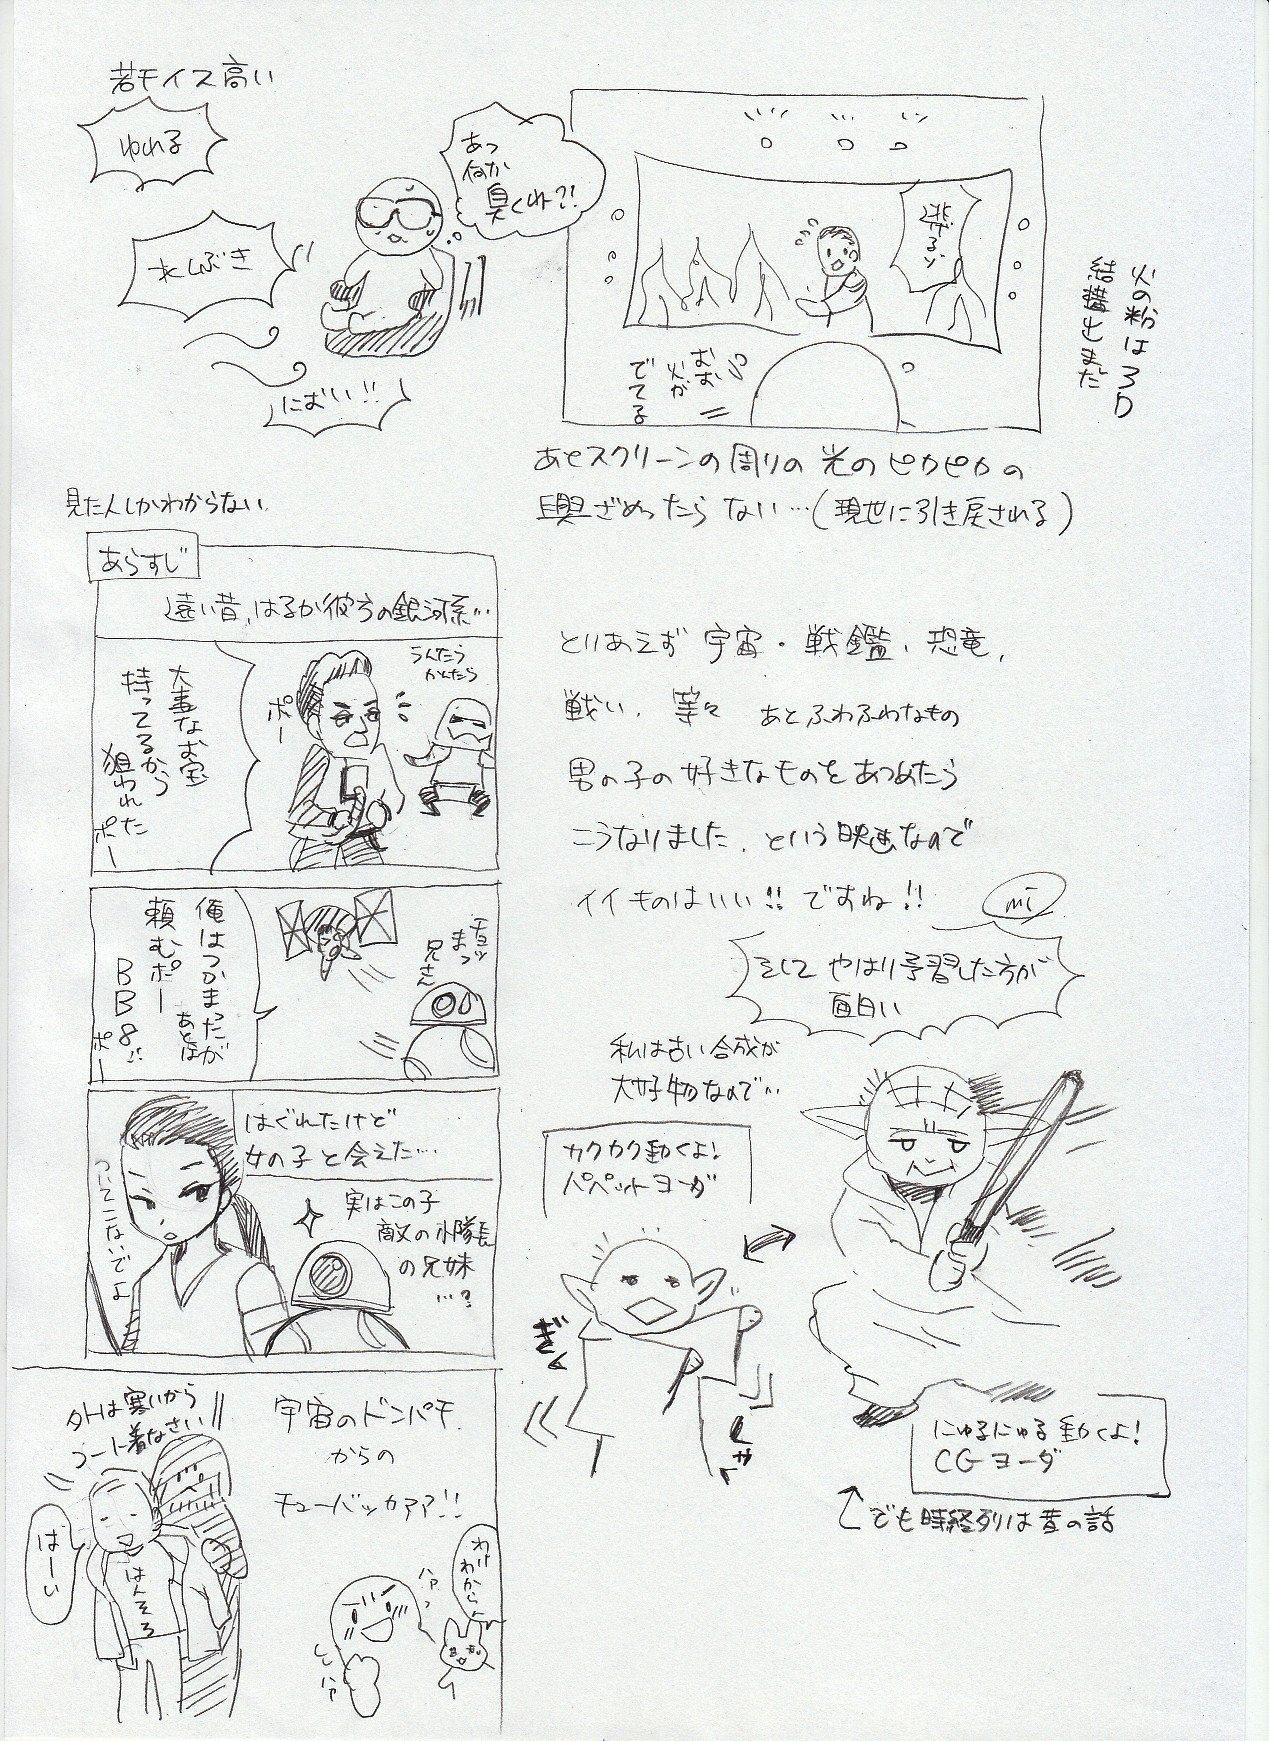 若干イス高い
ゆれる
水しぶき
におい!!
あっ
何か
臭くね?!
逃げるゾ
おお
火が
でてる
火の粉は3D
結構出ました
あとスクリーンの周りの光のピカピカの
興ざめったらない…(現世に引き戻される)
見た人しかわからない
あらすじ
遠い昔、はるか彼方の銀河系…
大事なお宝
持ってるから
狙われた
ポー
ポー
うんたら
かんたら
俺はつかまったが
あとは
頼むポー
BB8!!
ポー
チョッ
まっ
兄さん
はぐれたけど
女の子と会えた…
ついてこないでよ
実はこの子
敵の小隊長
の兄妹
…?
外は寒いから
コート着なさい
はーい
はんそろ
宇宙のドンパチ
からの
チューバッカァァ!!
ハァッ
ハァ
わけ
わからん
とりあえず宇宙・戦艦、恐竜、
戦い、等々 あとふわふわなもの
男の子の好きなものをあつめたら
こうなりました、という映画なので
イイものはいい!!ですね!!
mi
そして やはり予習した方が
面白い
私は古い合成が
大好物なので…
カクカク動くよ!
パペットヨーダ
ぎく
しゃく
にゅるにゅる動くよ!
CGヨーダ
でも時経列は昔の話